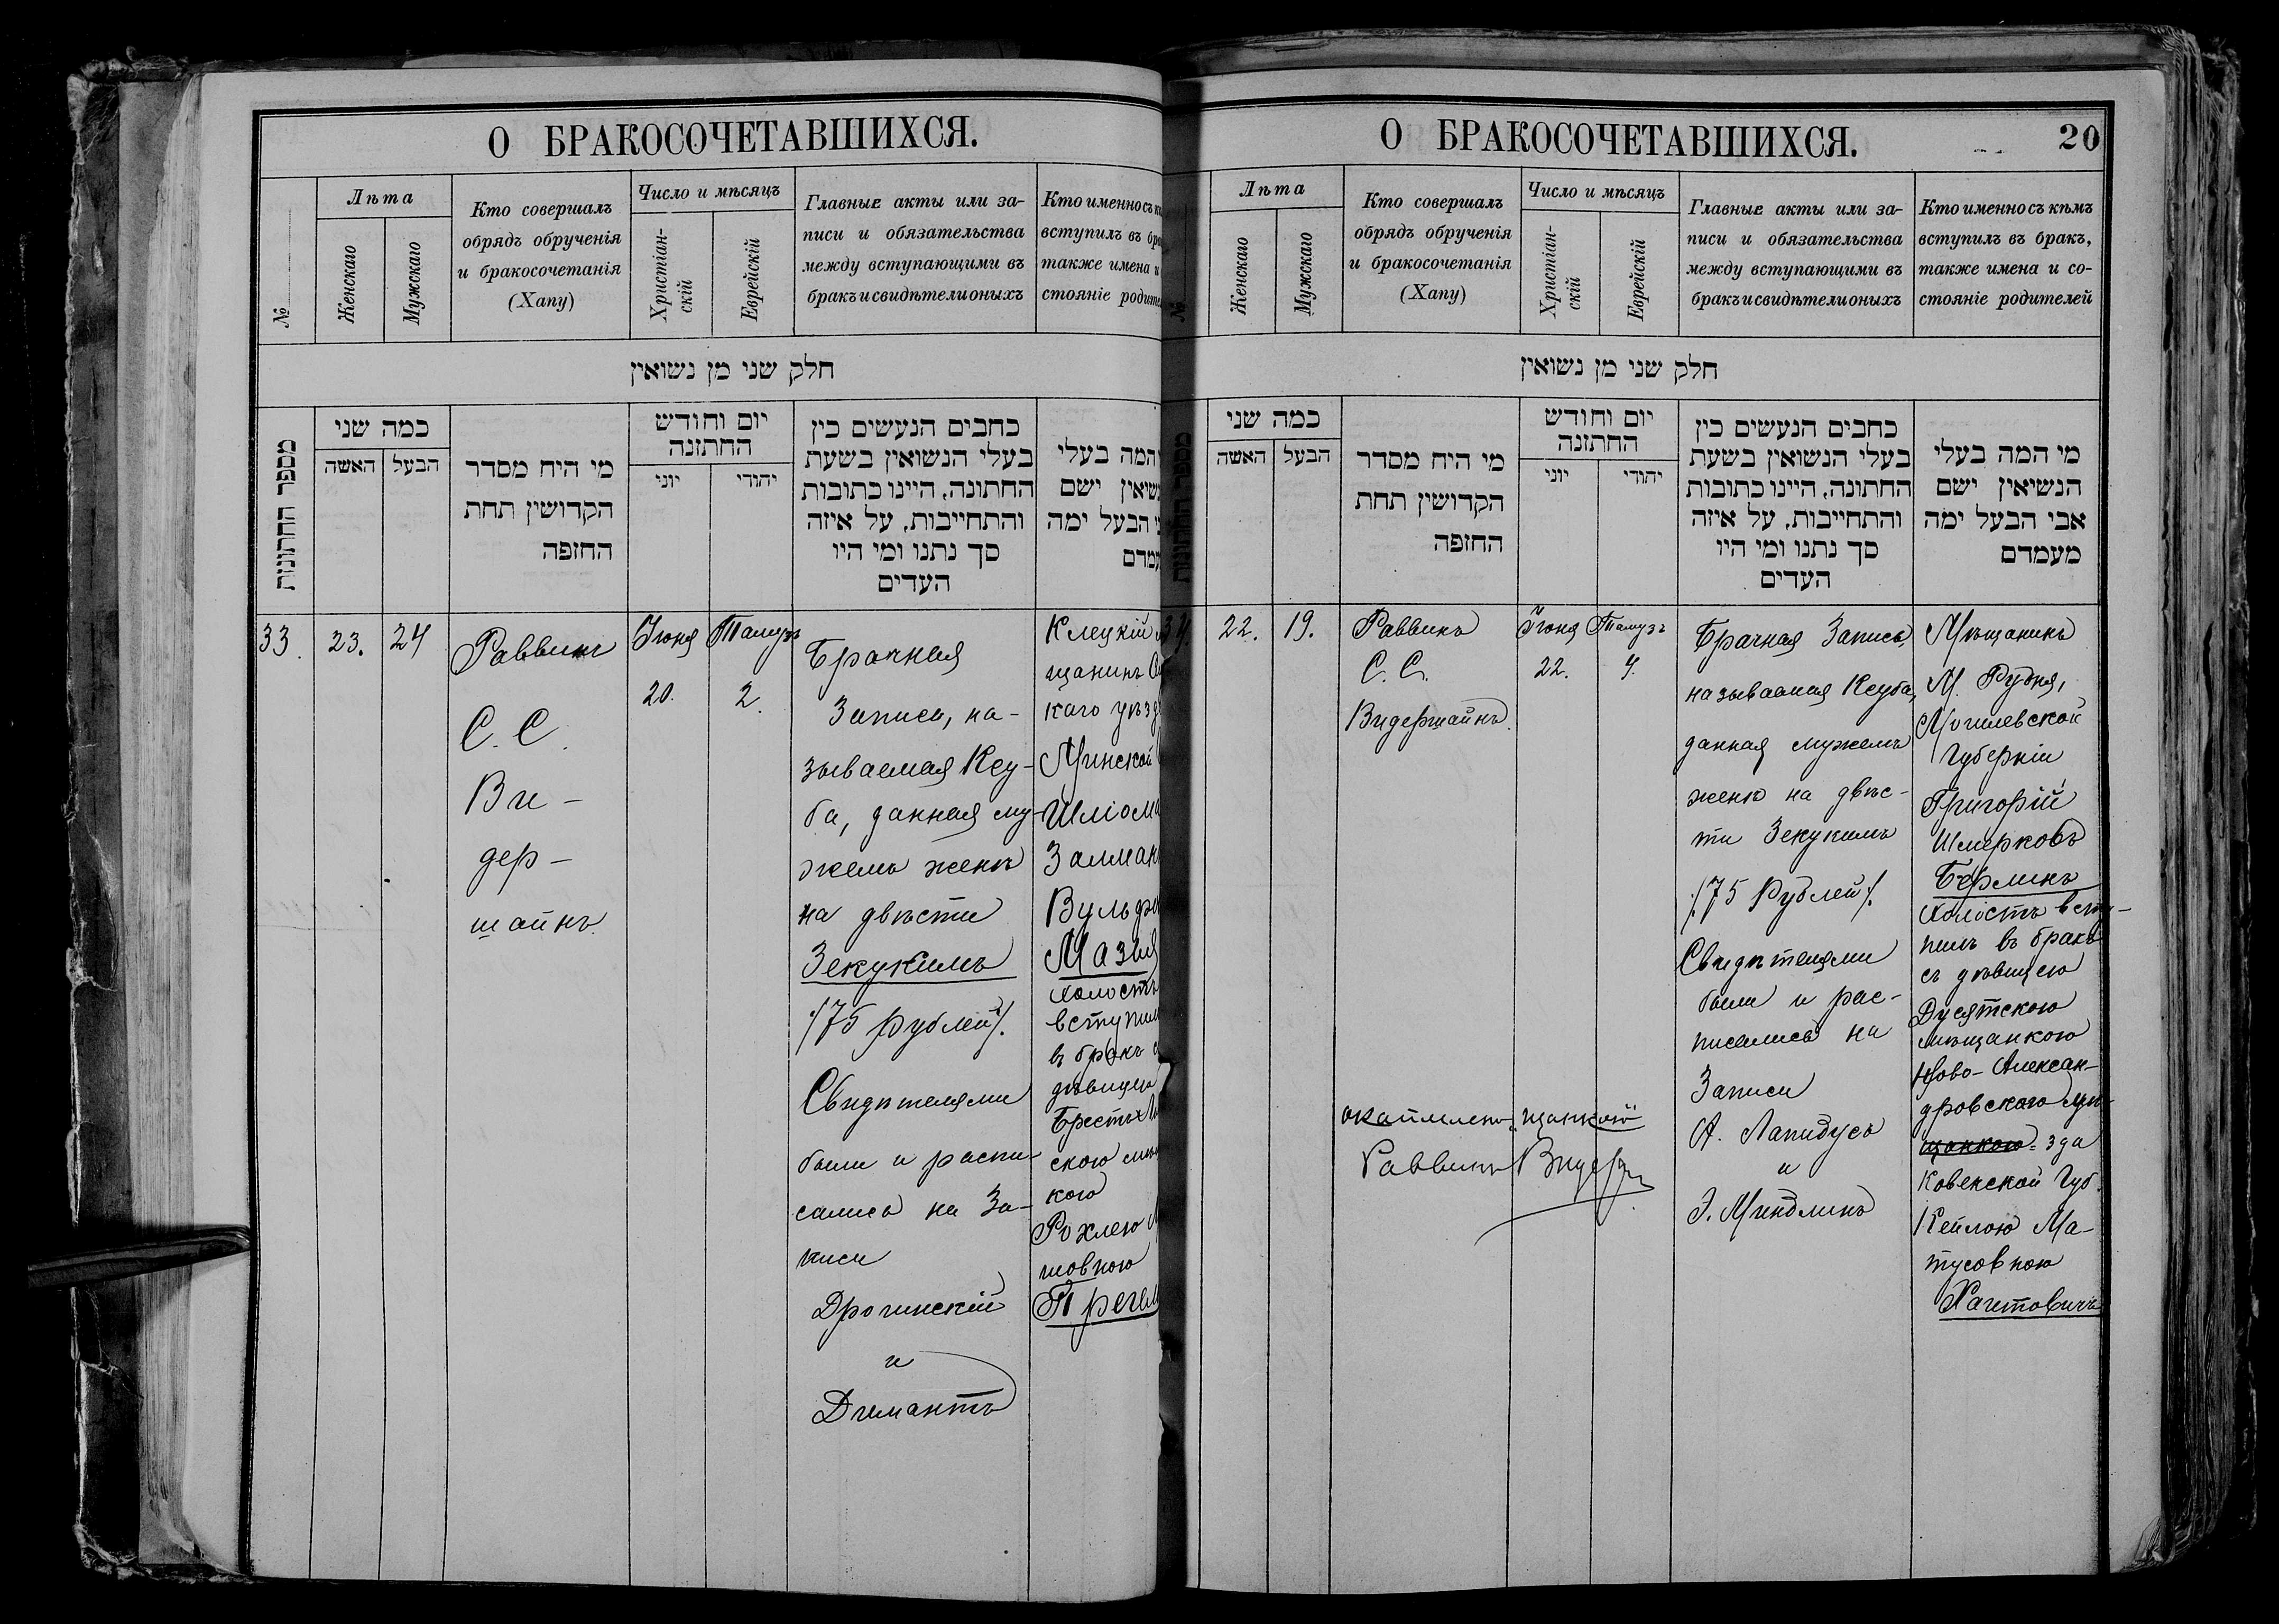 О БРАКОСОЧЕТАВШИХСЯ.
№
Лѣта
Женскаго
Мужскаго
Кто совершалъ
обрядъ обрученія
и бракосочетанія
(Хапу)
Число и мѣсяцъ
Христіан-
скій
Еврейскій
Главные акты или за-
писи и обязательства
между вступающими въ
бракъ и свидѣтели оныхъ
Кто именно съ
вступилъ въ
также имена и
стояніе
חלק שני מן נשואין
מספר החתונות
כמה שני
האשה
הבעל
מי היח מסדר
הקדושין תחת
החופה
יום וחודש
החתונה
יוני
יהודי
כחבים הנעשים כין
בעלי הנשואין בשעת
החתונה, היינו כתובות
והתחייבות, על איזה
סך נתנו ומי היו
העדים
המה בעלי
ישם
הבעל ימה
33.
23.
24
Раввинъ
С. С.
Ви-
дер-
шайнъ.
Іюня
20.
Тамузъ
2.
Брачная
Запись, на-
зываемая Кеу-
ба, данная му-
жемъ женѣ
на двѣсти
Зекукимъ
/75 рублей/.
Свидѣтелями
были и распи-
сались на За-
писи
Дрогинскій
и
Димантъ
Клецкій
щанинъ
каго
Минской
Шліома
Залман
Вульфо
Мазья
холостъ
вступил
въ бракъ
дѣвицею
Брестъ
скою
кою
Рохлею
шовною
О БРАКОСОЧЕТАВШИХСЯ.
20
№
Лѣта
Женскаго
Мужскаго
Кто совершалъ
обрядъ обрученія
и бракосочетанія
(Хапу)
Число и мѣсяцъ
Христіан-
скій
Еврейскій
Главные акты или за-
писи и обязательства
между вступающими въ
бракъ и свидѣтели оныхъ
Кто именно съ кѣмъ
вступилъ въ бракъ,
также имена и со-
стояніе родителей
חלק שני מן נשואין
מספר החתונות
כמה שני
האשה
הבעל
מי היח מסדר
הקדושין תחת
החופה
יום וחודש
החתונה
יוני
יהודי
כחבים הנעשים כין
בעלי הנשואין בשעת
החתונה, היינו כתובות
והתחייבות, על איזה
סך נתנו ומי היו
העדים
מי המה בעלי
הנשיאין ישם
אבי הבעל ימה
מעמדם
34.
22.
19.
Раввинъ
С. С.
Видершайнъ.
Іюня
22.
Тамузъ
4.
Брачная Запись,
называемая Кеуба,
данная мужемъ
женѣ на двѣс-
ти Зекукимъ
/75 Рублей/.
Свидѣтелями
были и рас-
писались на
Записи
А. Лапидусъ
и
Э. Миндлинъ
Мѣщанинъ
М. Рудня,
Могилевской
Губерніи
Григорій
Шмерковъ
Берлинъ
холостъ всту-
пилъ въ бракъ
съ дѣвицею
Дусятскою
мѣщанкою
Ново-Алексан-
дровскаго уѣ-
щанкою = зда
Ковенской Губ.
Кейлою Ма-
тусовною
щанкой
Раввинъ Видер